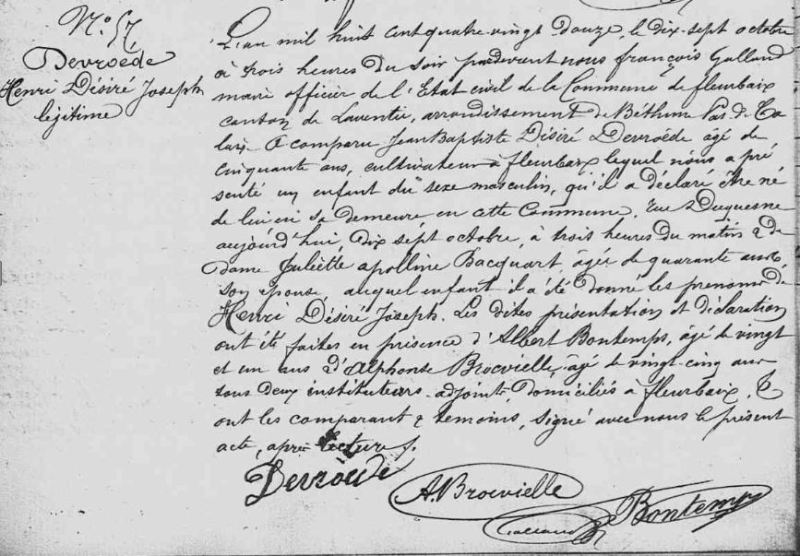 N.º 57
Devroéde
Henri Désiré Joseph
légitime
L'an mil huit cent quatre-vingt douze, le dix-sept octobre
à trois heures du soir pardevant nous françois Galland
maire officier de l'Etat civil de la Commune de fleurbaix
canton de Laventie, arrondissement de Béthune Pas-de-Ca-
lais. A comparu Jean Baptiste Désiré Devroéde âgé de
cinquante ans, cultivateur à fleurbaix lequel nous a pré
senté un enfant du sexe masculin, qu'il a déclaré être né
de lui en sa demeure en cette Commune, rue Duquesne
aujourd'hui, dix sept octobre, à trois heures du matin & de
dame Juliette apolline Bacquart, agée de quarante ans
son épouse, auquel enfant il a été donné les prénoms de
Henri Désiré Joseph. Les dites présentation et déclaration
ont été faites en présence d'Albert Bontemps, âgé de vingt
et un ans & d'Alphonse Brocvielle, âgé de vingt-cinq ans
tous deux instituteurs-adjoints, domiciliés à fleurbaix. Et
ont les comparant & témoins, signé avec nous le présent
acte, après lecture.
Devroéde
A. Brocvielle
Bontemps